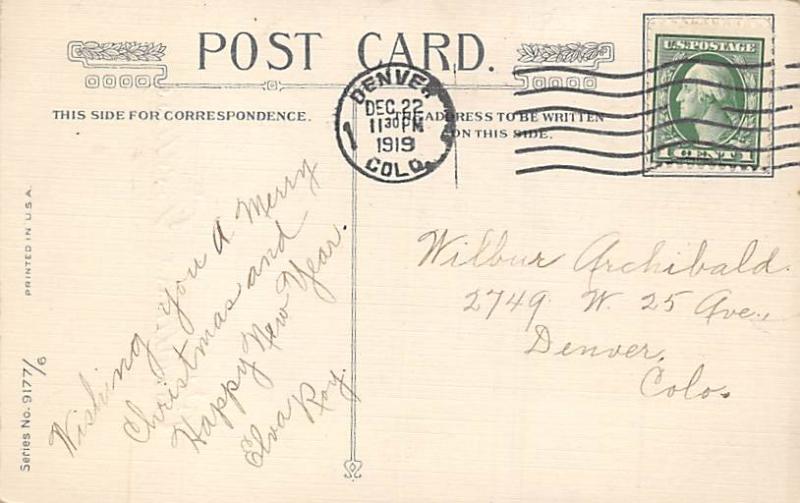 POST CARD.
THIS SIDE FOR CORRESPONDENCE.
THE ADDRESS TO BE WRITTEN
ON THIS SIDE.
DENVER
DEC. 22
11 30 PM
1919
COLO.
1
U.S. POSTAGE
1 CENT 1
Wishing you A Merry
Christmas and
Happy New Year.
Elva Roy.
Wilbur Archibald.
2749 W. 25 Ave.,
Denver,
Colo.
PRINTED IN U.S.A.
Series No. 9177/6